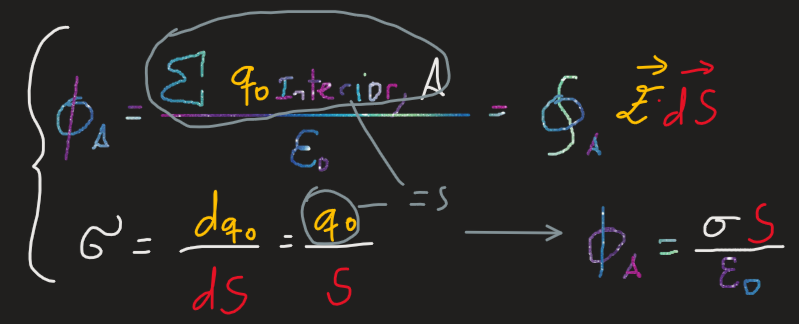 ϕ_A = Σ q₀ Interior, A / ε₀ = ∮_A E⃗ · dS⃗
= s
σ = dq₀ / dS = q₀ / S → ϕ_A = σ S / ε₀